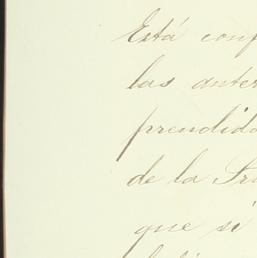 Está conf
las anter
prendido
de la
que si